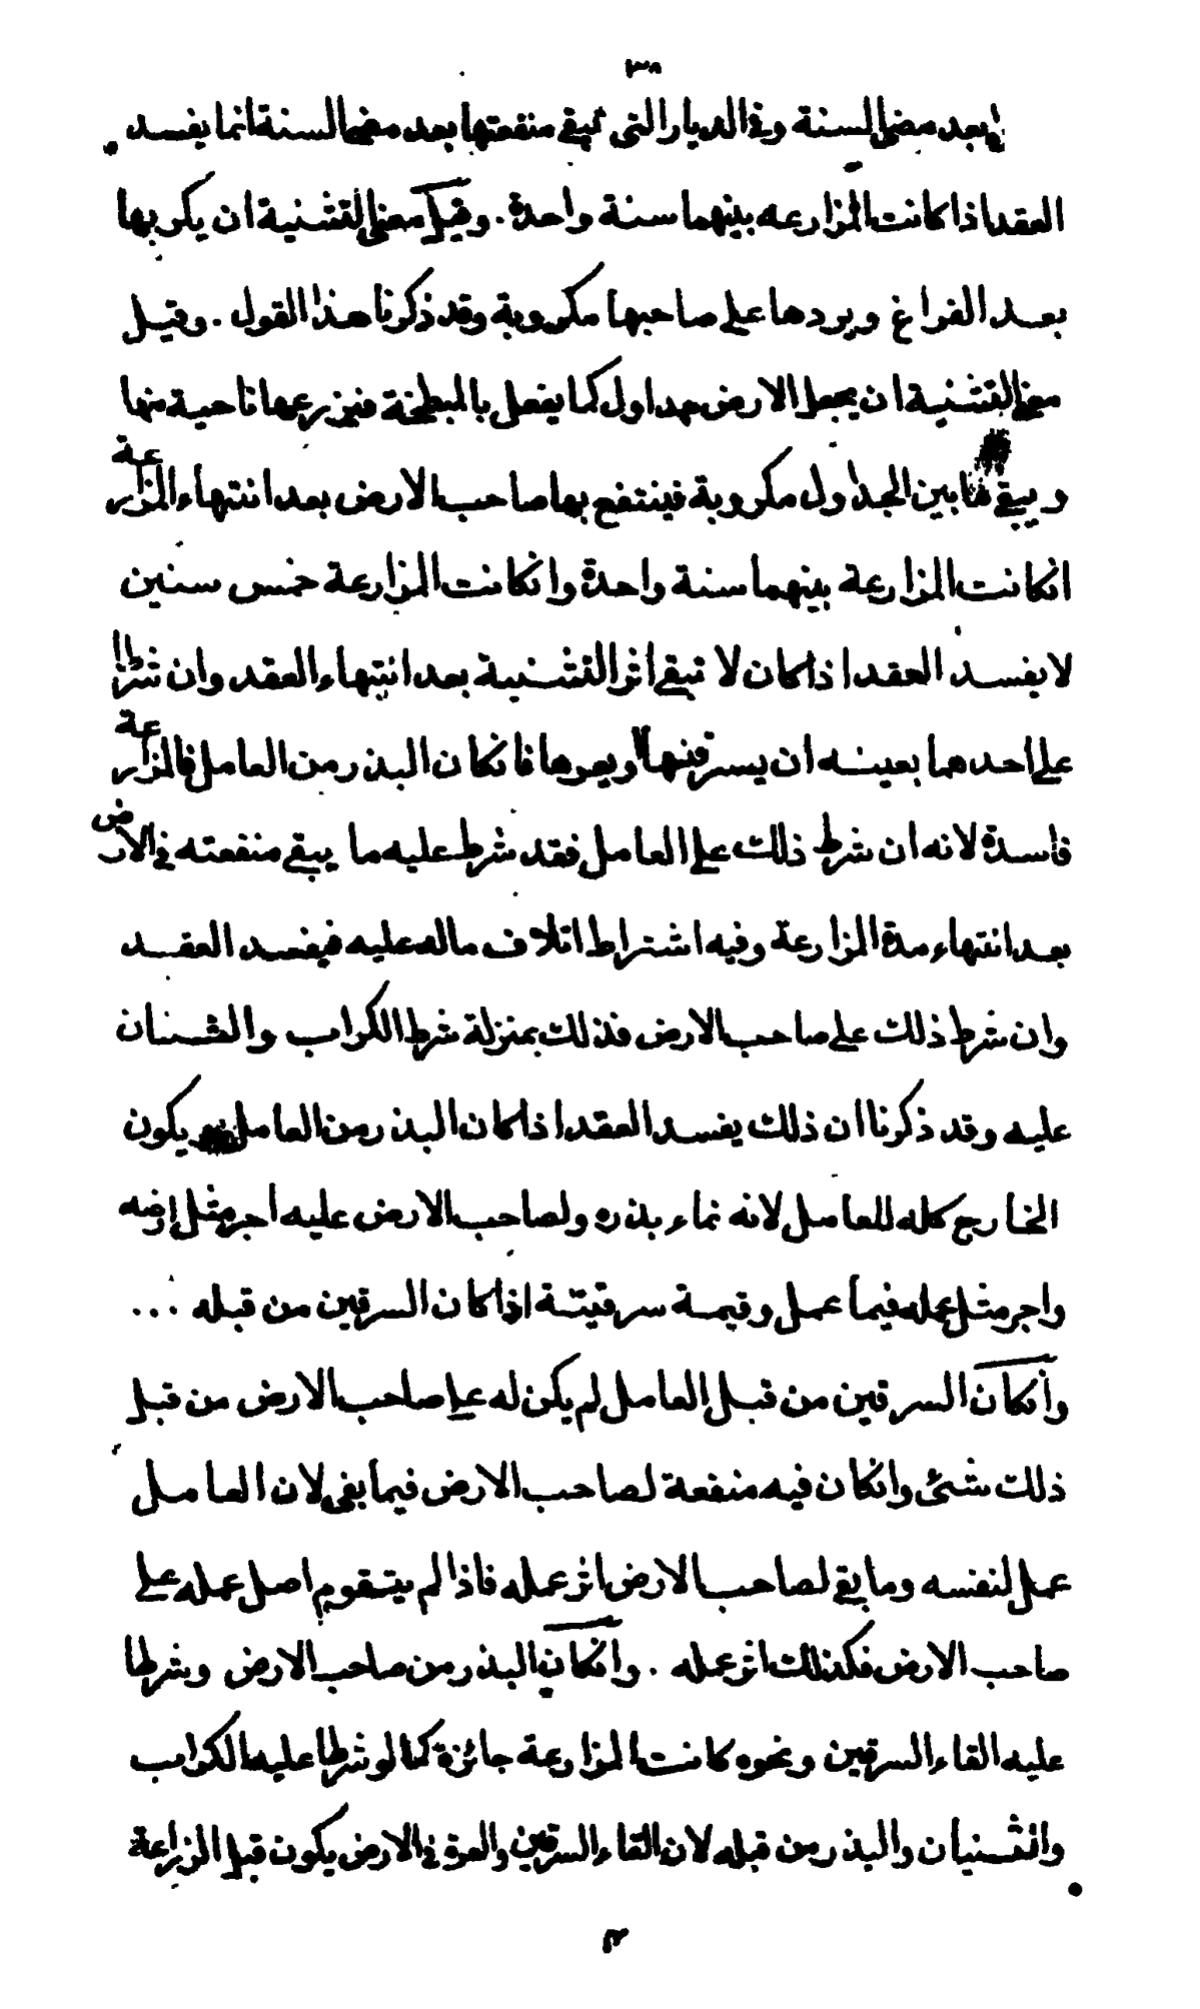 ٣٨
بعد مضى السنة وفى الديار التى تبقى منفعتها بعد مضى السنة انما يفسد
العقد اذا كانت المزارعه بينهما سنة واحدة . وقيل معنى التثنية ان يكربها
بعد الفراغ ويردها على صاحبها مكروبة وقد ذكرنا هذا القول . وقيل
معنى التثنية ان يجعل الارض جداول كما يفعل بالمبطخة فيزرعها ناحية منها
ويبقى ما بين الجداول مكروبة فينتفع بها صاحب الارض بعد انتهاء المزارعة
انكانت المزارعة بينهما سنة واحدة وانكانت المزارعة خمس سنين
لا يفسد العقد اذا كان لا تبقى اثر التثنية بعد انتهاء العقد وان شرطا
على احدهما بعينه ان يسرقنها ويعرها فانكان البذر من العامل فالمزارعة
فاسدة لانه ان شرط ذلك على العامل فقد شرط عليه ما يبقى منفعته فى الارض
بعد انتهاء مدة المزارعة وفيه اشتراط اتلاف ماله عليه فيفسد العقد
وان شرط ذلك على صاحب الارض فذلك بمنزلة شرط الكراب والثنيان
عليه وقد ذكرنا ان ذلك يفسد العقد اذا كان البذر من العامل يكون
الخارج كله للعامل لانه نماء بذره ولصاحب الارض عليه اجر مثل ارضه
واجر مثل عمله فيما عمل وقيمة سرقينة اذا كان السرقين من قبله ...
وانكان السرقين من قبل العامل لم يكن له على صاحب الارض من قبل
ذلك شئ وانكان فيه منفعة لصاحب الارض فيما بقى لان العامل
عمل لنفسه وما بقى لصاحب الارض اثر عمله فاذا لم يتقوم اصل عمله على
صاحب الارض فكذلك اثر عمله . وانكان البذر من صاحب الارض وشرطا
عليه القاء السرقين ونحوه كانت المزارعة جائزة كما لو شرطا عليه الكراب
والثنيان والبذر من قبله لان القاء السرقين والعرة فى الارض يكون قبل الزراعة